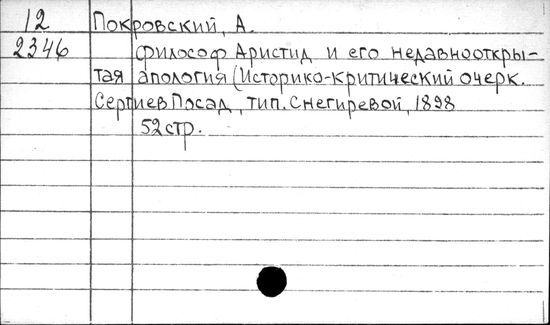 12 Покровский, А.
2346 Философ Аристид и его недавнооткры-
тая апология (Историко-критический очерк.
Сергиев Посад, тип. Снегиревой, 1898
52 стр.